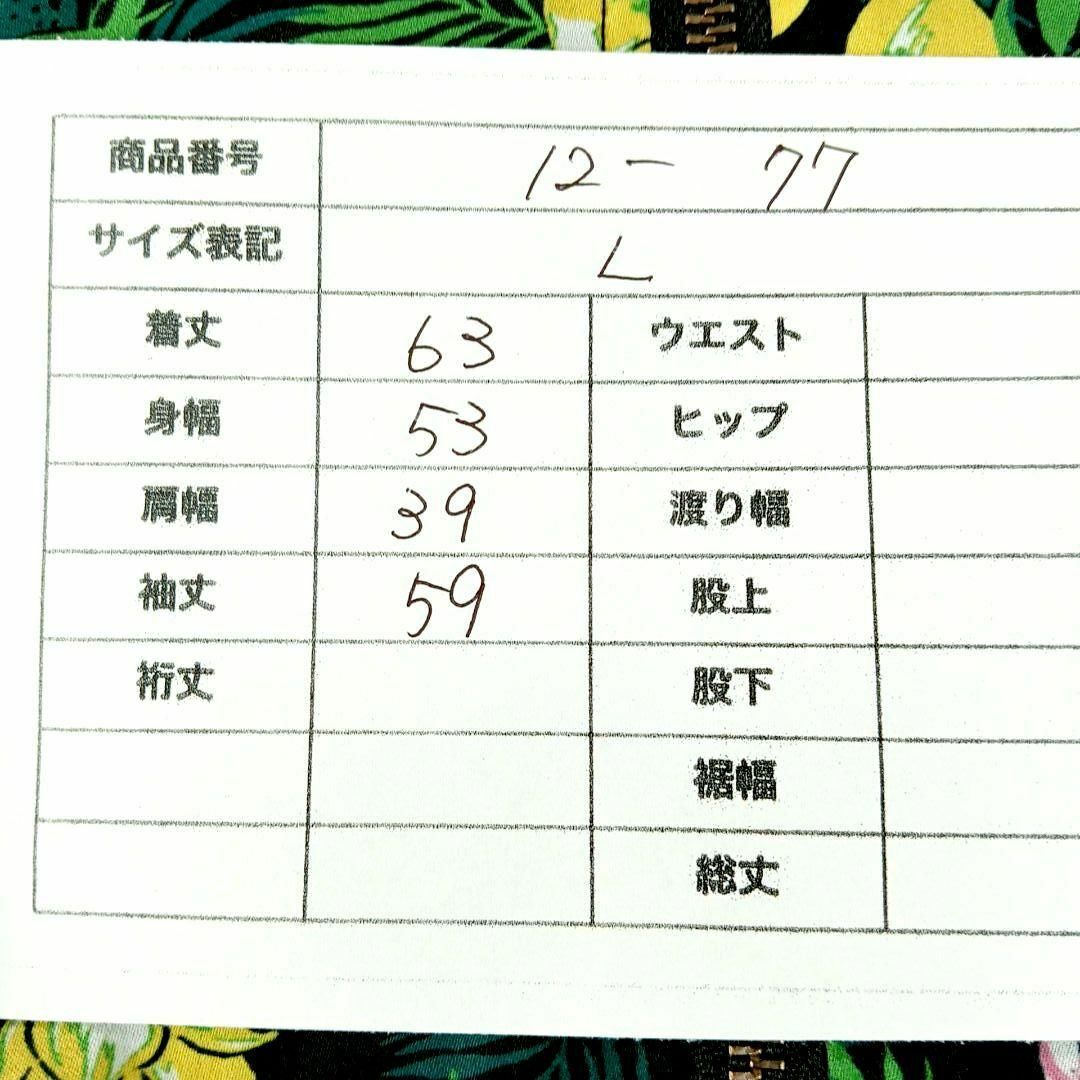 商品番号 12- 77
サイズ表記 L
着丈 63 ウエスト
身幅 53 ヒップ
肩幅 39 渡り幅
袖丈 59 股上
裄丈 股下
裾幅
総丈